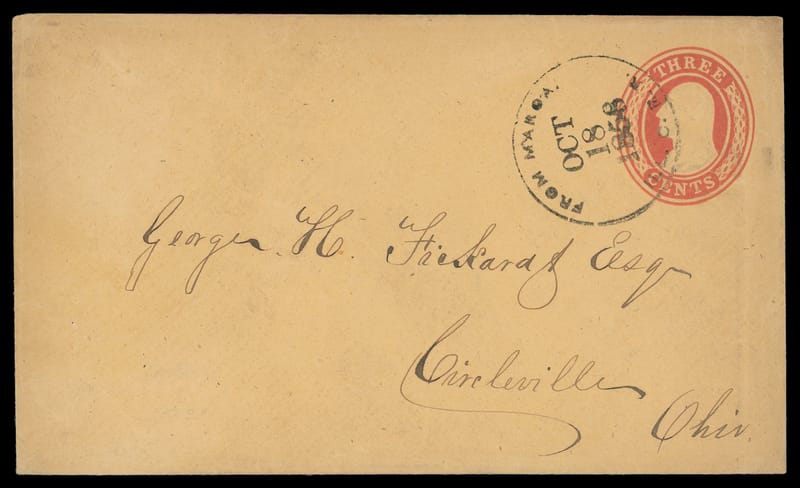 THREE
CENTS
FROM MAROA.
OCT
18
1858
George H. Fickardt Esq
Circleville
Ohio